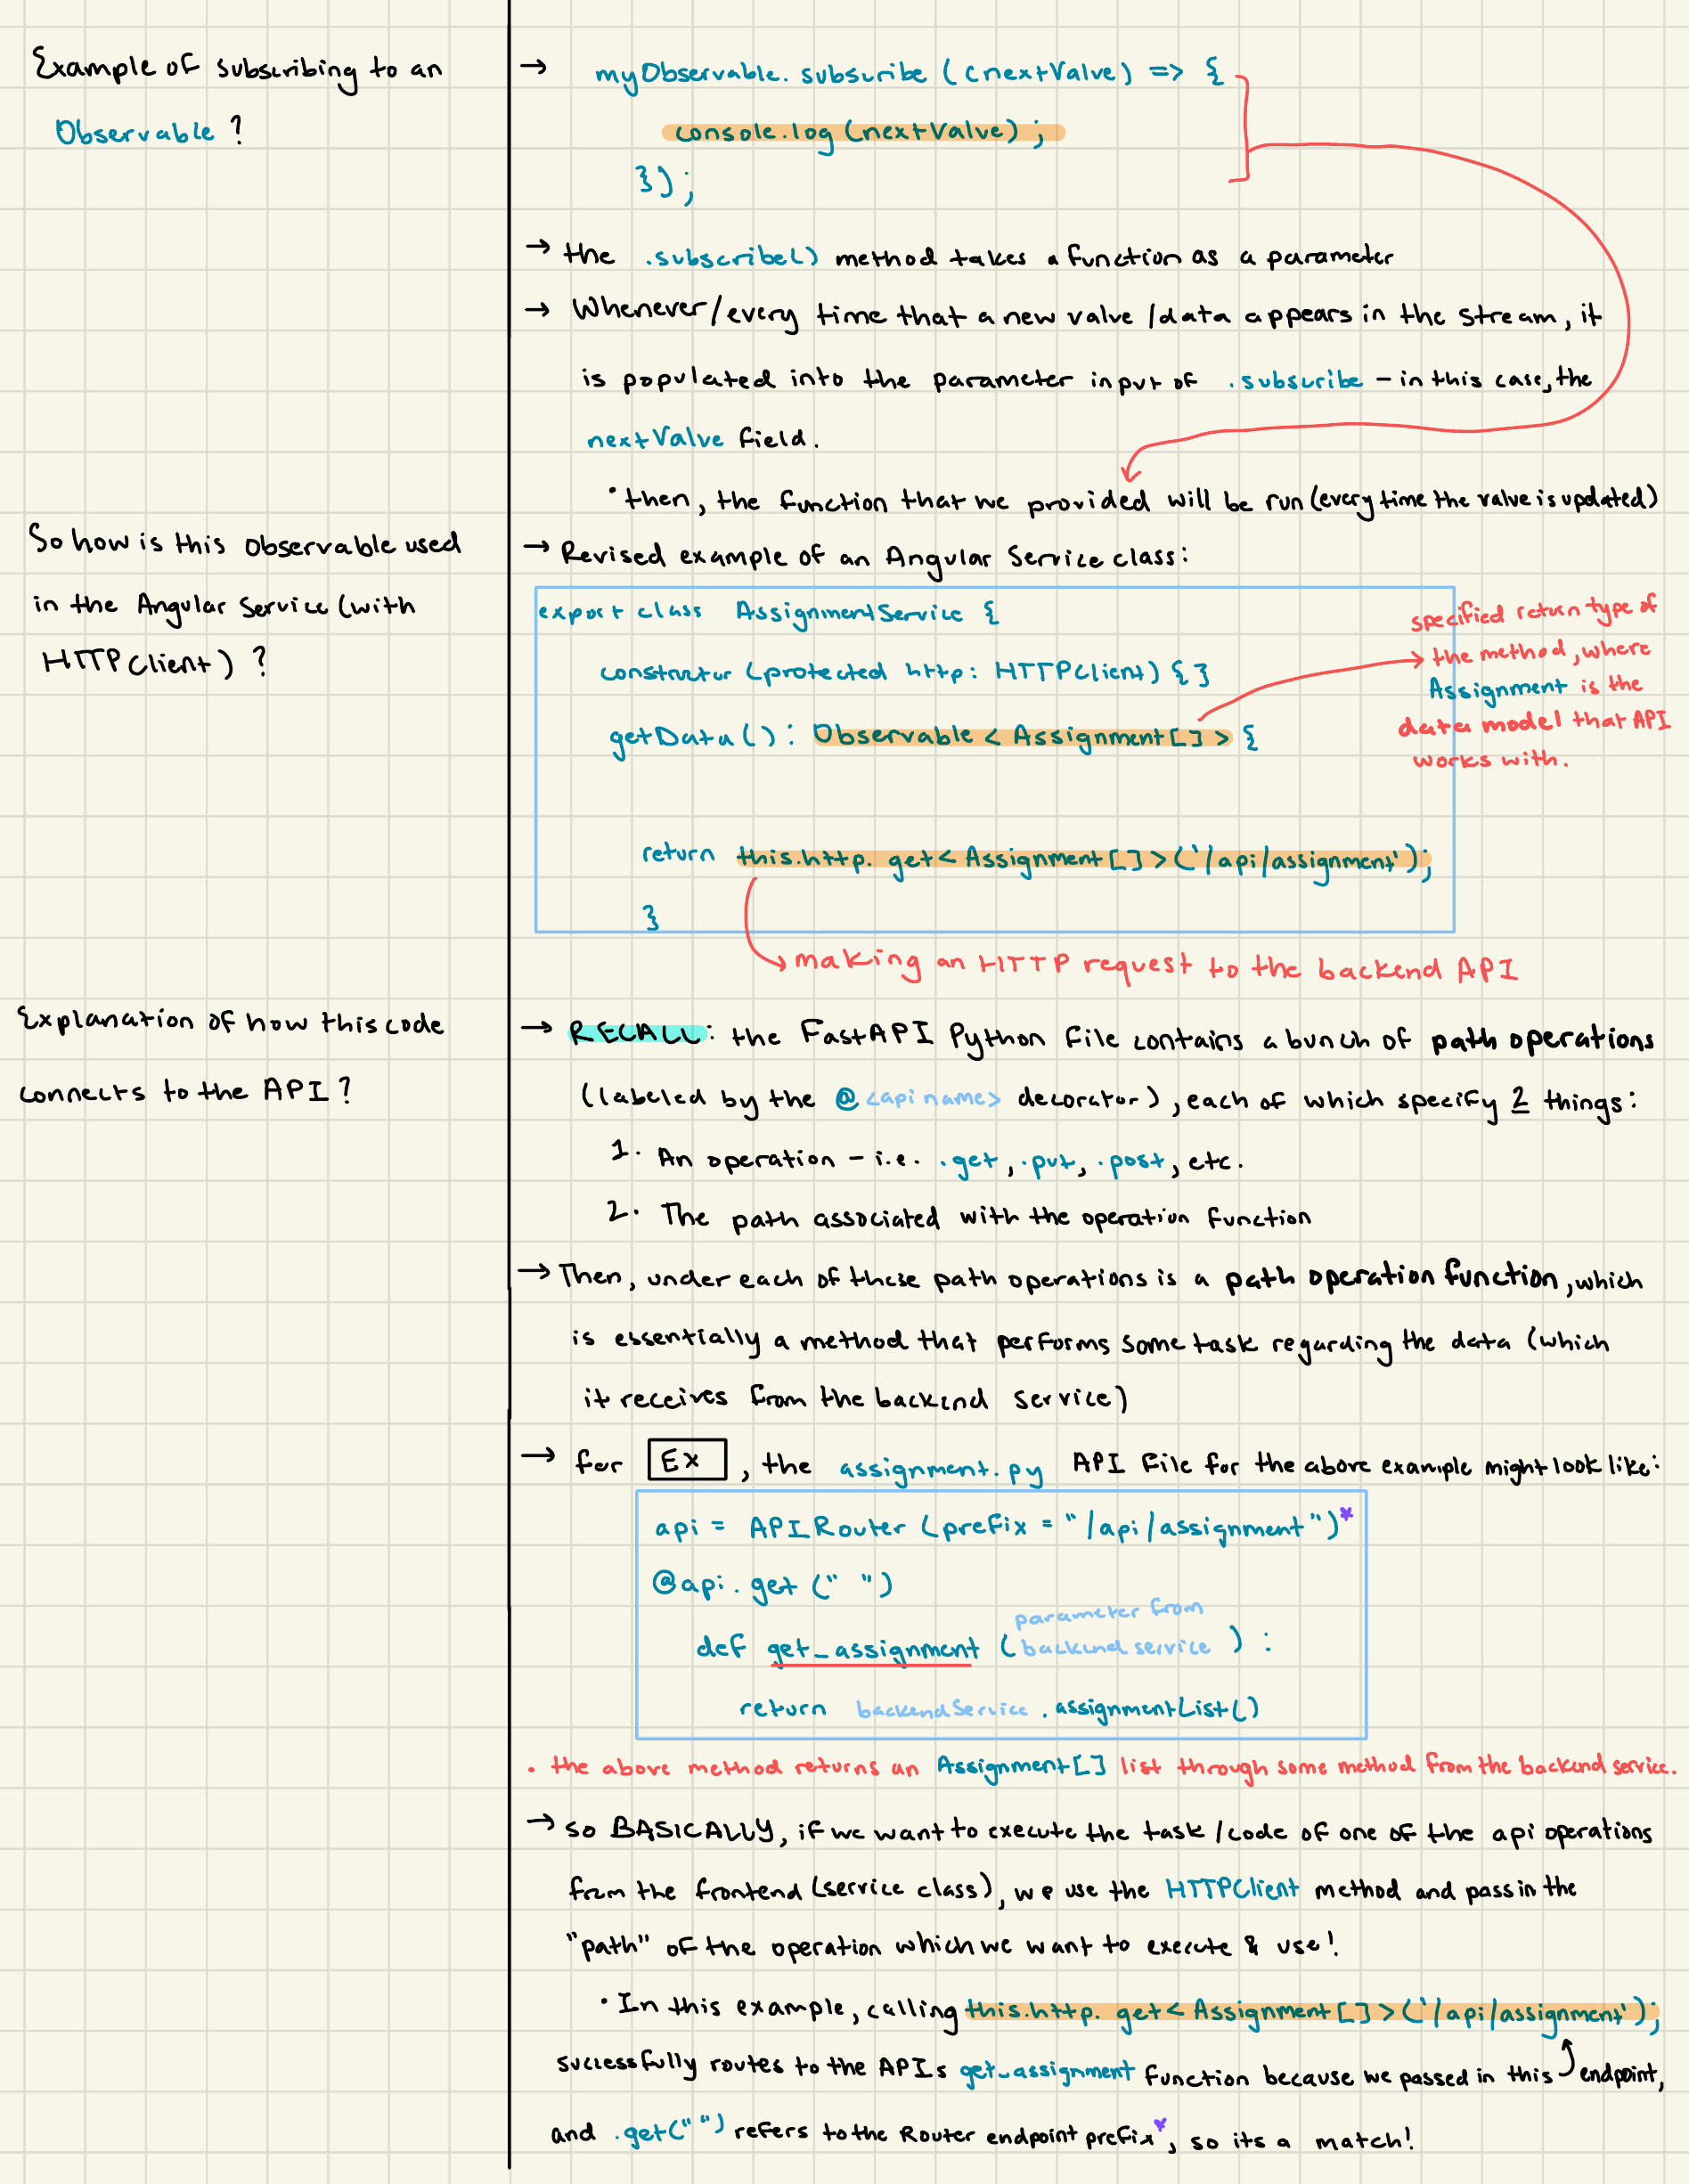 Example of subscribing to an
Observable ?
→ myObservable. subscribe ( (nextValue) => {
console.log (nextValue) ;
}) ;
→ the .subscribe() method takes a function as a parameter
→ Whenever/every time that a new value /data appears in the stream, it
is populated into the parameter input of .subscribe - in this case, the
nextValue field.
• then, the function that we provided will be run (every time the value is updated)
So how is this Observable used
in the Angular Service (with
HTTPClient) ?
→ Revised example of an Angular Service class:
export class AssignmentService {
constructor (protected http: HTTPClient) { }
getData () : Observable < Assignment[] > {
return this.http. get< Assignment [] >('/api/assignment');
}
specified return type of
the method, where
Assignment is the
data model that API
works with.
making an HTTP request to the backend API
Explanation of how this code
connects to the API ?
→ RECALL: the FastAPI Python file contains a bunch of path operations
(labeled by the @<api name> decorator), each of which specify 2 things:
1. An operation - i.e. .get, .put, .post, etc.
2. The path associated with the operation function
→ Then, under each of these path operations is a path operation function, which
is essentially a method that performs some task regarding the data (which
it receives from the backend service)
→ for Ex , the assignment.py API file for the above example might look like:
api = APIRouter (prefix = "/api/assignment")*
@api. get (" ")
def get_assignment ( parameter from
backend service ) :
return backendService .assignmentList()
• the above method returns an Assignment[] list through some method from the backend service.
→ so BASICALLY, if we want to execute the task /code of one of the api operations
from the frontend (service class), we use the HTTPClient method and pass in the
"path" of the operation which we want to execute & use!
• In this example, calling this.http. get< Assignment [] >('/api/assignment');
successfully routes to the APIs get_assignment function because we passed in this endpoint,
and .get("") refers to the Router endpoint prefix*, so its a match!